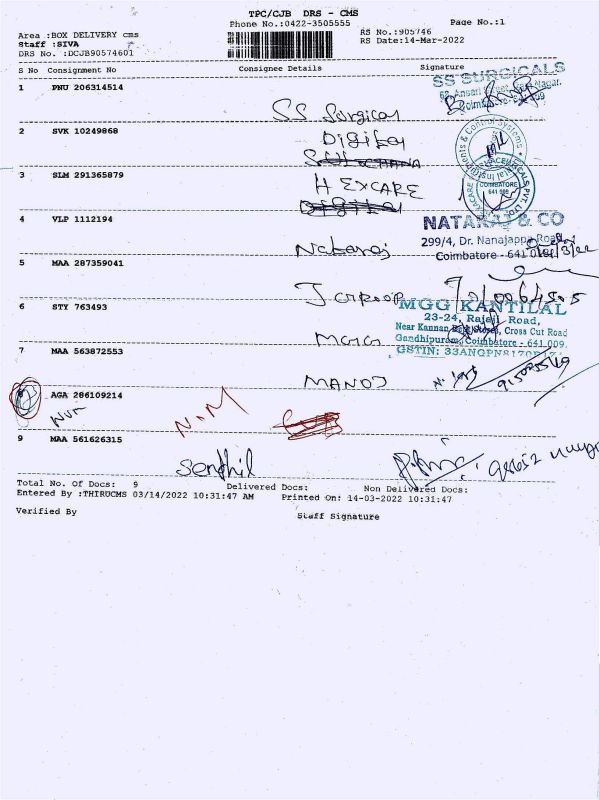 TPC/CJB DRS - CMS
Phone No.:0422-3505555 Page No.:1
Area :BOX DELIVERY cms RS No.:905746
Staff :SIVA RS Date:14-Mar-2022
DRS No. :DCJB90574601
S No Consignment No Consignee Details Signature
SS SURGICALS
1 PNU 206314514
SS Surgical
2 SVK 10249868
Digital
3 SLM 291365879
COIMBATORE
HEXCARE
4 VLP 1112194
NATARAJ & CO
299/4, Dr. Nanajappa Road,
Coimbatore - 641
Nataraj
5 MAA 287359041
6 STY 763493
MGG KANTILAL
23-24, Rajaji Road,
Near Kannan Cross Cut Road
Gandhipuram, Coimbatore - 641 009.
MGG
7 MAA 563872553
MANOJ
8 AGA 286109214
N.M
9 MAA 561626315
Senthil
Total No. Of Docs: 9 Delivered Docs: Non Delivered Docs:
Entered By :THIRUCMS 03/14/2022 10:31:47 AM Printed On: 14-03-2022 10:31:47
Verified By Staff Signature